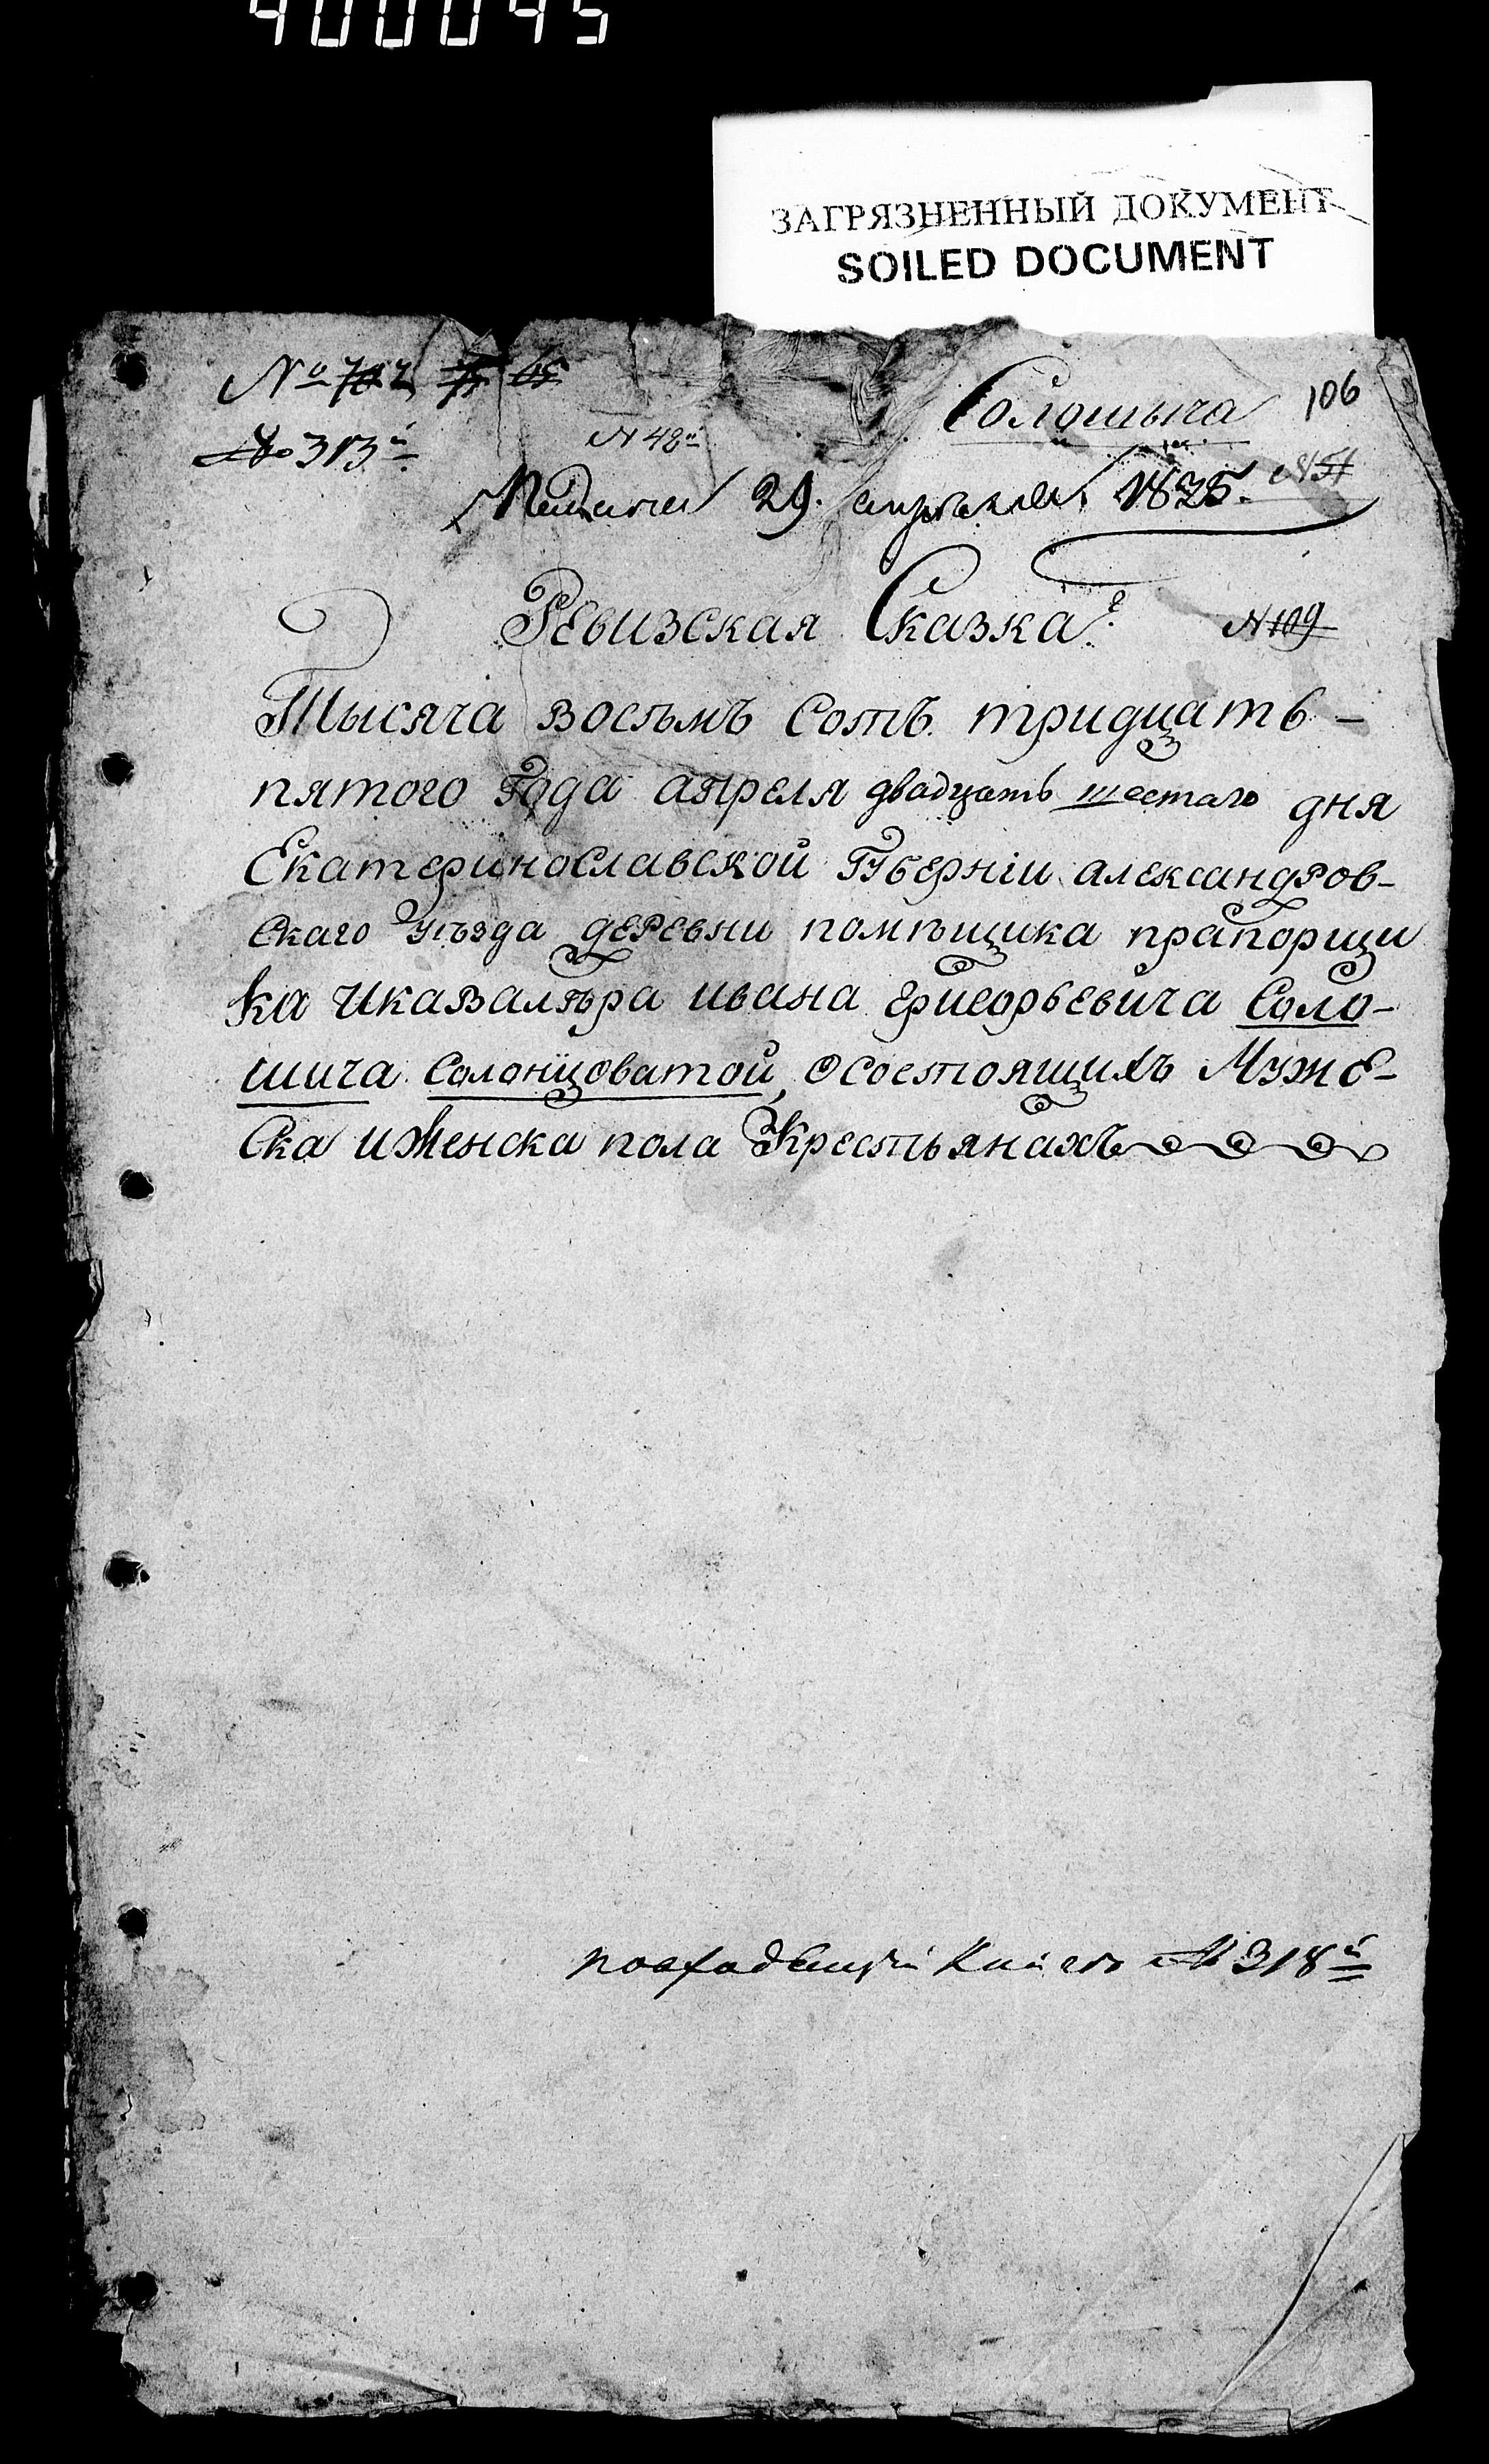 400045
ЗАГРЯЗНЕННЫЙ ДОКУМЕНТ
SOILED DOCUMENT
№ 702
№ 313й
N 48й
Солошича 106
Подана 29. апреля 1835. N 51
Ревизская Сказка N 109
Тысяча восъмъ Сотъ тридцатъ –
пятого Года апреля двадцать шестаго дня
Екатеринославской Губерніи александров-
скаго уѣзда деревни помѣщика прапорщи
ка икавалѣра ивана григорьевича Соло-
шича Солонцоватой, осостоящихъ Мужс-
ска иЖенска пола Крестьянахъ
N 318й